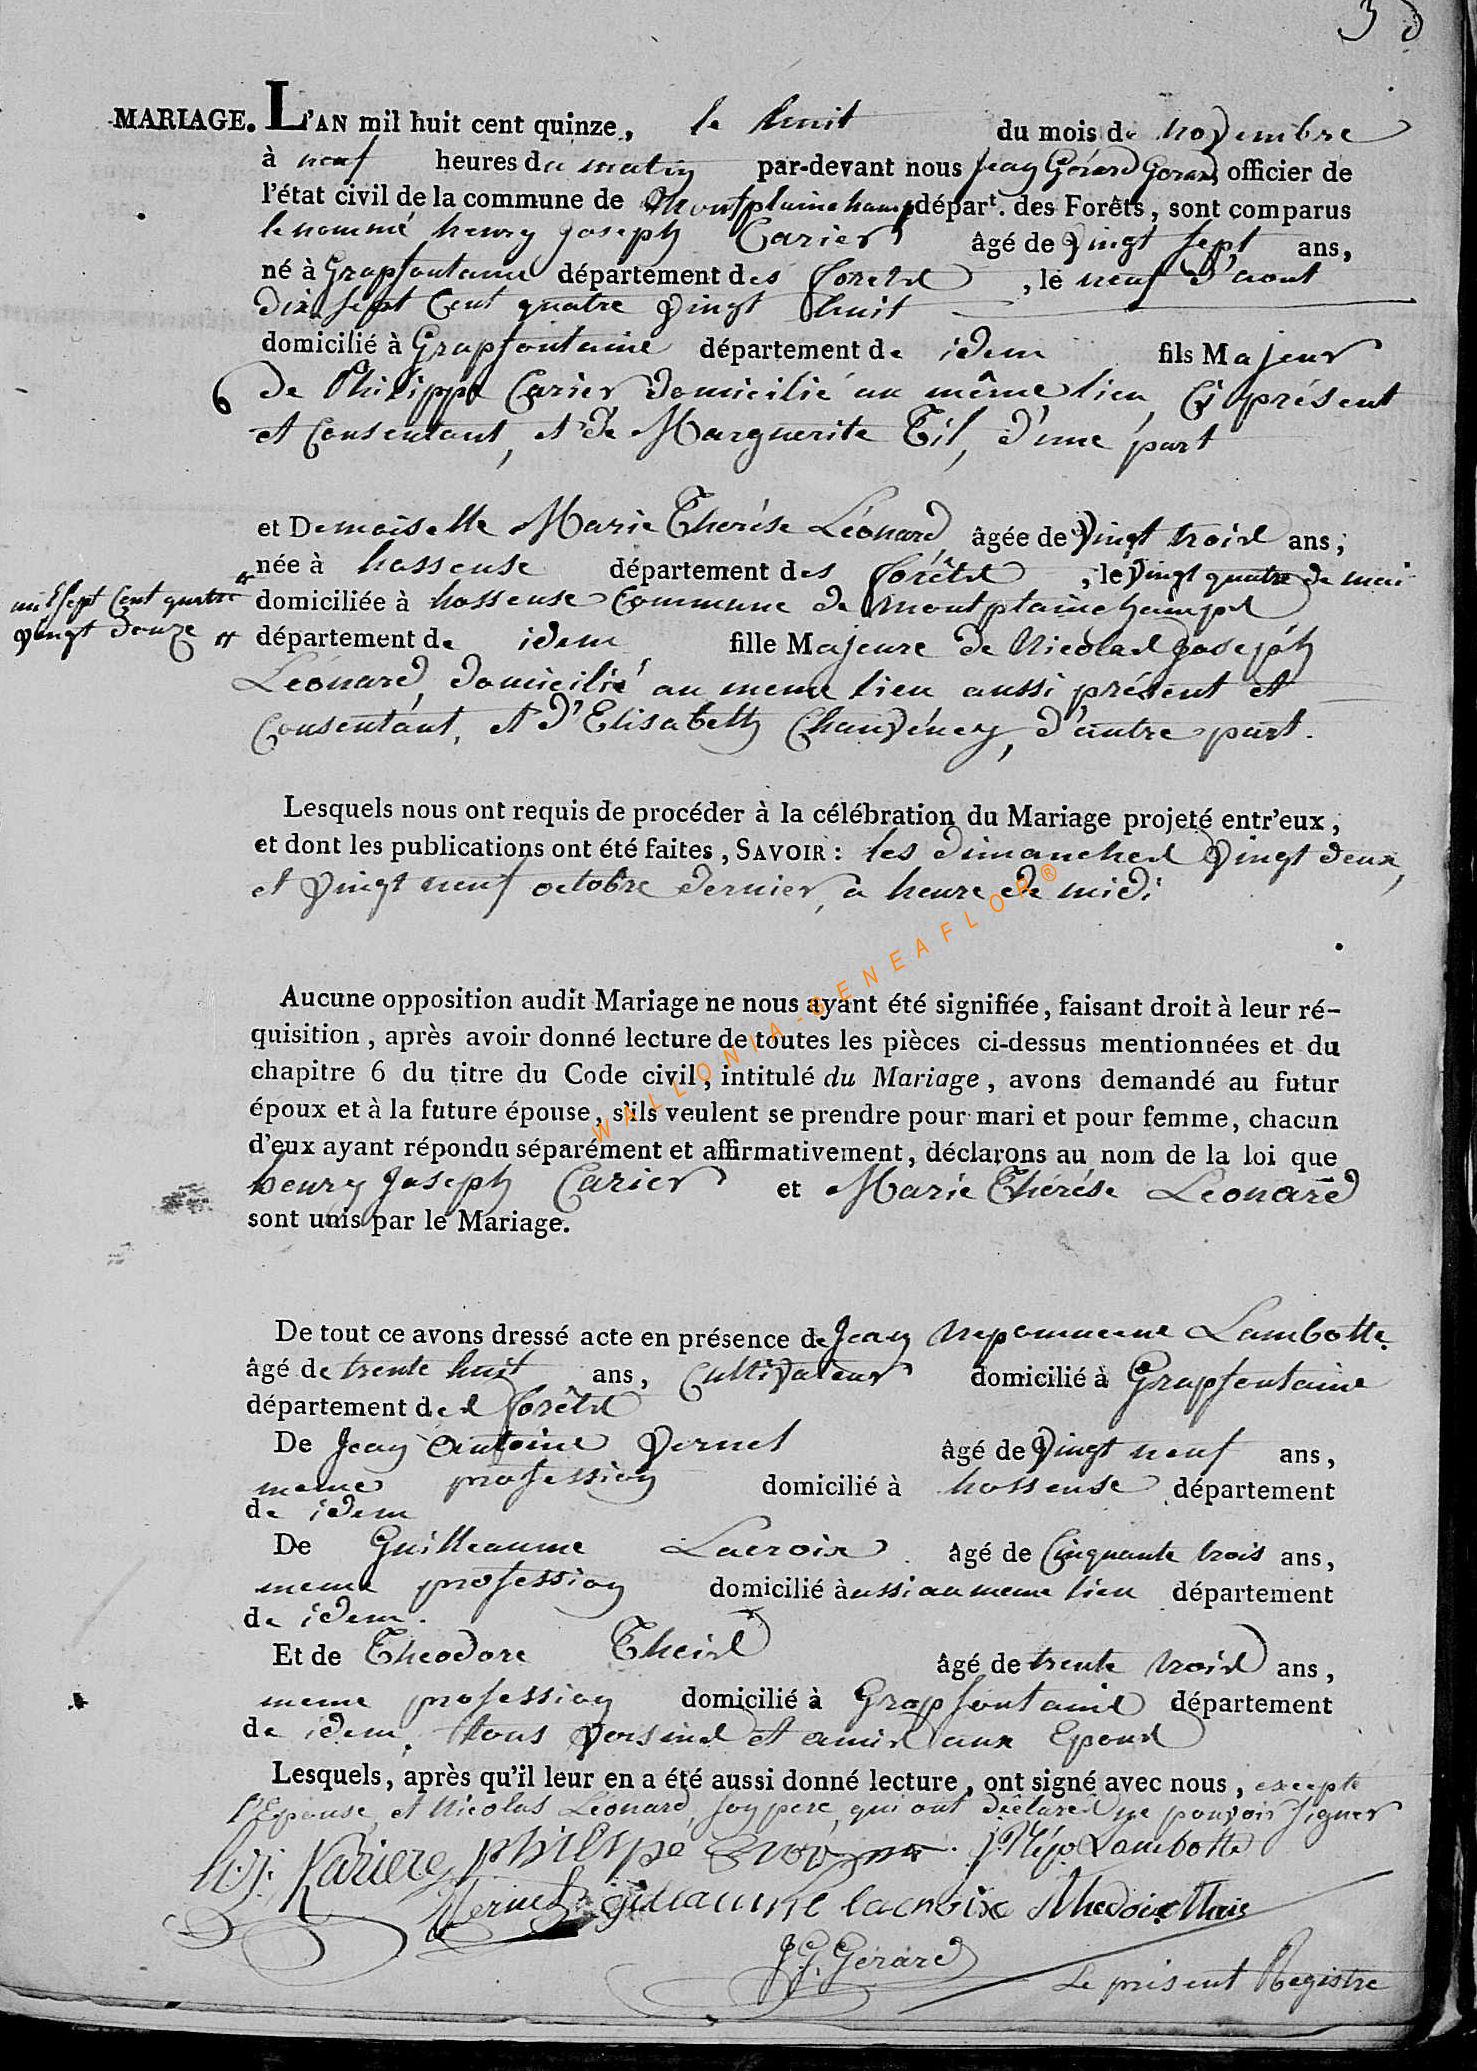 MARIAGE. L'AN mil huit cent quinze, le huit du mois de novembre
à neuf heures du matin par-devant nous Jean Gérard Gerard, officier de
l'état civil de la commune de Montplainchamp départ. des Forêts, sont comparus
le nommé henry joseph Carier âgé de vingt sept ans,
né à Grapfontaine département des foretz, le neuf d'aout
dix sept Cent quatre vingt huit
domicilié à Grapfontaine département de idem fils Majeur
de Philippe Carier domicilié au même lieu Ci présent
et Consentant, et de Marguerite Til, d'une part
et Demoiselle Marie Thérèse Léonard âgée de vingt trois ans,
née à hosseuse département des forêts, le vingt quatre de mai
mil sept Cent quatre
vingt douze
domiciliée à hosseuse Commune de montplainchamps
département de idem fille Majeure de Nicolas Joseph
Léonard, domicilié au meme lieu aussi présent et
Consentant, et d'Elisabeth Chauvency, d'autre part.
Lesquels nous ont requis de procéder à la célébration du Mariage projeté entr'eux,
et dont les publications ont été faites, SAVOIR : les dimanches vingt deux,
et vingt neuf octobre dernier, a heure de midi
Aucune opposition audit Mariage ne nous ayant été signifiée, faisant droit à leur ré-
quisition, après avoir donné lecture de toutes les pièces ci-dessus mentionnées et du
chapitre 6 du titre du Code civil, intitulé du Mariage, avons demandé au futur
époux et à la future épouse, s'ils veulent se prendre pour mari et pour femme, chacun
d'eux ayant répondu séparément et affirmativement, déclarons au nom de la loi que
henry Joseph Carier et Marie Thérèse Leonard
sont unis par le Mariage.
De tout ce avons dressé acte en présence de Jean Nepomucene Lambotte
âgé de trente huit ans, Cultivateur domicilié à Grapfontaine
département des forêts
De Jean Antoine Vernel âgé de vingt neuf ans,
meme profession domicilié à hosseuse département
de idem
De Guilleaume Lacroix âgé de Cinquante trois ans,
meme profession domicilié à ussi au meme lieu département
de idem.
Et de Theodore Theis âgé de trente trois ans,
meme profession domicilié à Grapfontaine département
de idem, tous voisins et amis aux Epoux
Lesquels, après qu'il leur en a été aussi donné lecture, ont signé avec nous, excepté
l'Epouse, et Nicolas Léonard, son père, qui ont déclarés ne pouvoir signer
h.j. Kariere philipe j. Népo Lambotte
Vernel guillaume lacroix Thedore Thais
J. G. Gérard
Le présent Registre
WALLONIA-GENEAFLOR®